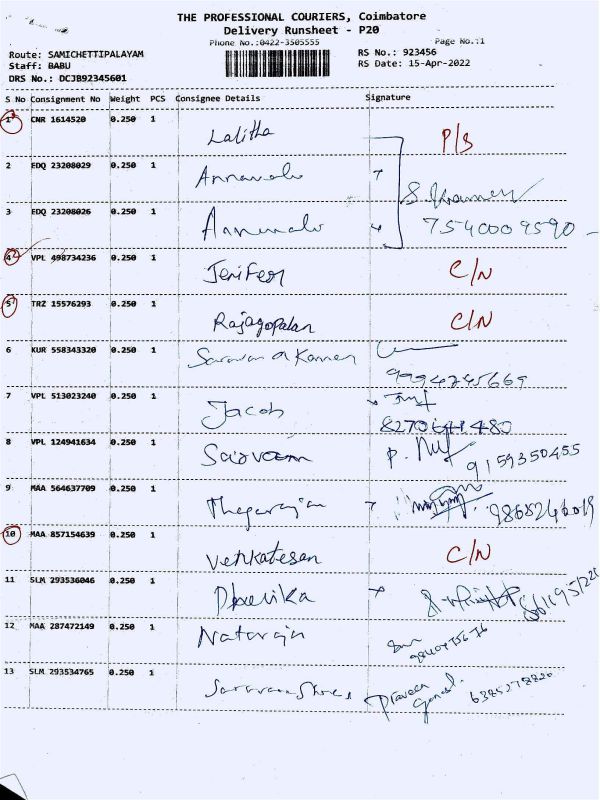 THE PROFESSIONAL COURIERS, Coimbatore
Delivery Runsheet - P20
Phone No.:0422-3505555 Page No.:1
Route: SAMICHETTIPALAYAM RS No.: 923456
Staff: BABU RS Date: 15-Apr-2022
DRS No.: DCJB92345601
S No Consignment No Weight PCS Consignee Details Signature
1 CNR 1614520 0.250 1 Lalitha P/S
2 EDQ 23208029 0.250 1
3 EDQ 23208026 0.250 1 7540009590
4 VPL 498734236 0.250 1 Jenifer C/N
5 TRZ 15576293 0.250 1 Rajagopalan C/N
6 KUR 558343320 0.250 1 9994745669
7 VPL 513023240 0.250 1 Jacob
8 VPL 124941634 0.250 1 9159350455
9 MAA 564637709 0.250 1 Thegarajan
10 MAA 857154639 0.250 1 Venkatesan C/N
11 SLM 293536046 0.250 1
12 MAA 287472149 0.250 1 Nataraja
13 SLM 293534765 0.250 1 Praveen